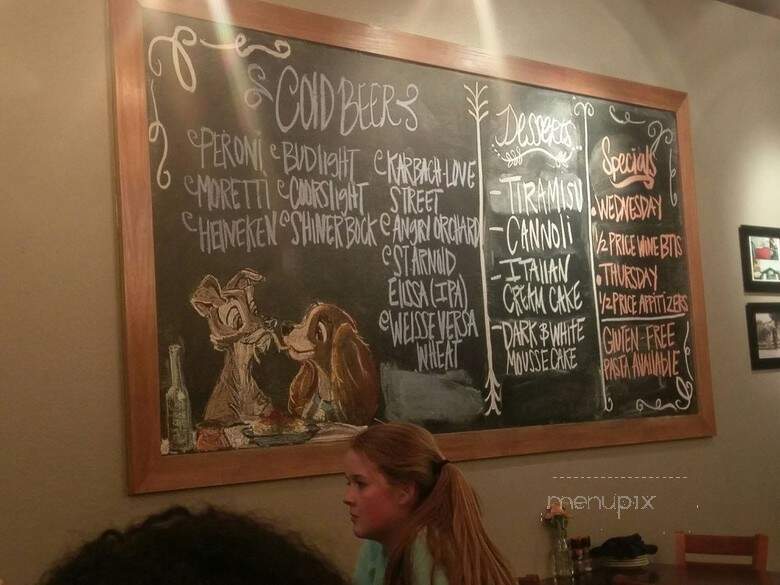 COLD BEER
PERONI
MORETTI
HEINEKEN
BUD LIGHT
COORS LIGHT
SHINER BOCK
KARBACH-LOVE
STREET
ANGRY ORCHARD
ST. ARNOLD
ELISSA (IPA)
WEISSE VERSA
WHEAT
Desserts
-TIRAMISU
-CANNOLI
-ITALIAN
CREAM CAKE
-DARK & WHITE
MOUSSE CAKE
Specials
• WEDNESDAY
1/2 PRICE WINE BTLS
• THURSDAY
1/2 PRICE APPITIZERS
GLUTEN-FREE
PASTA AVAILABLE
menupix